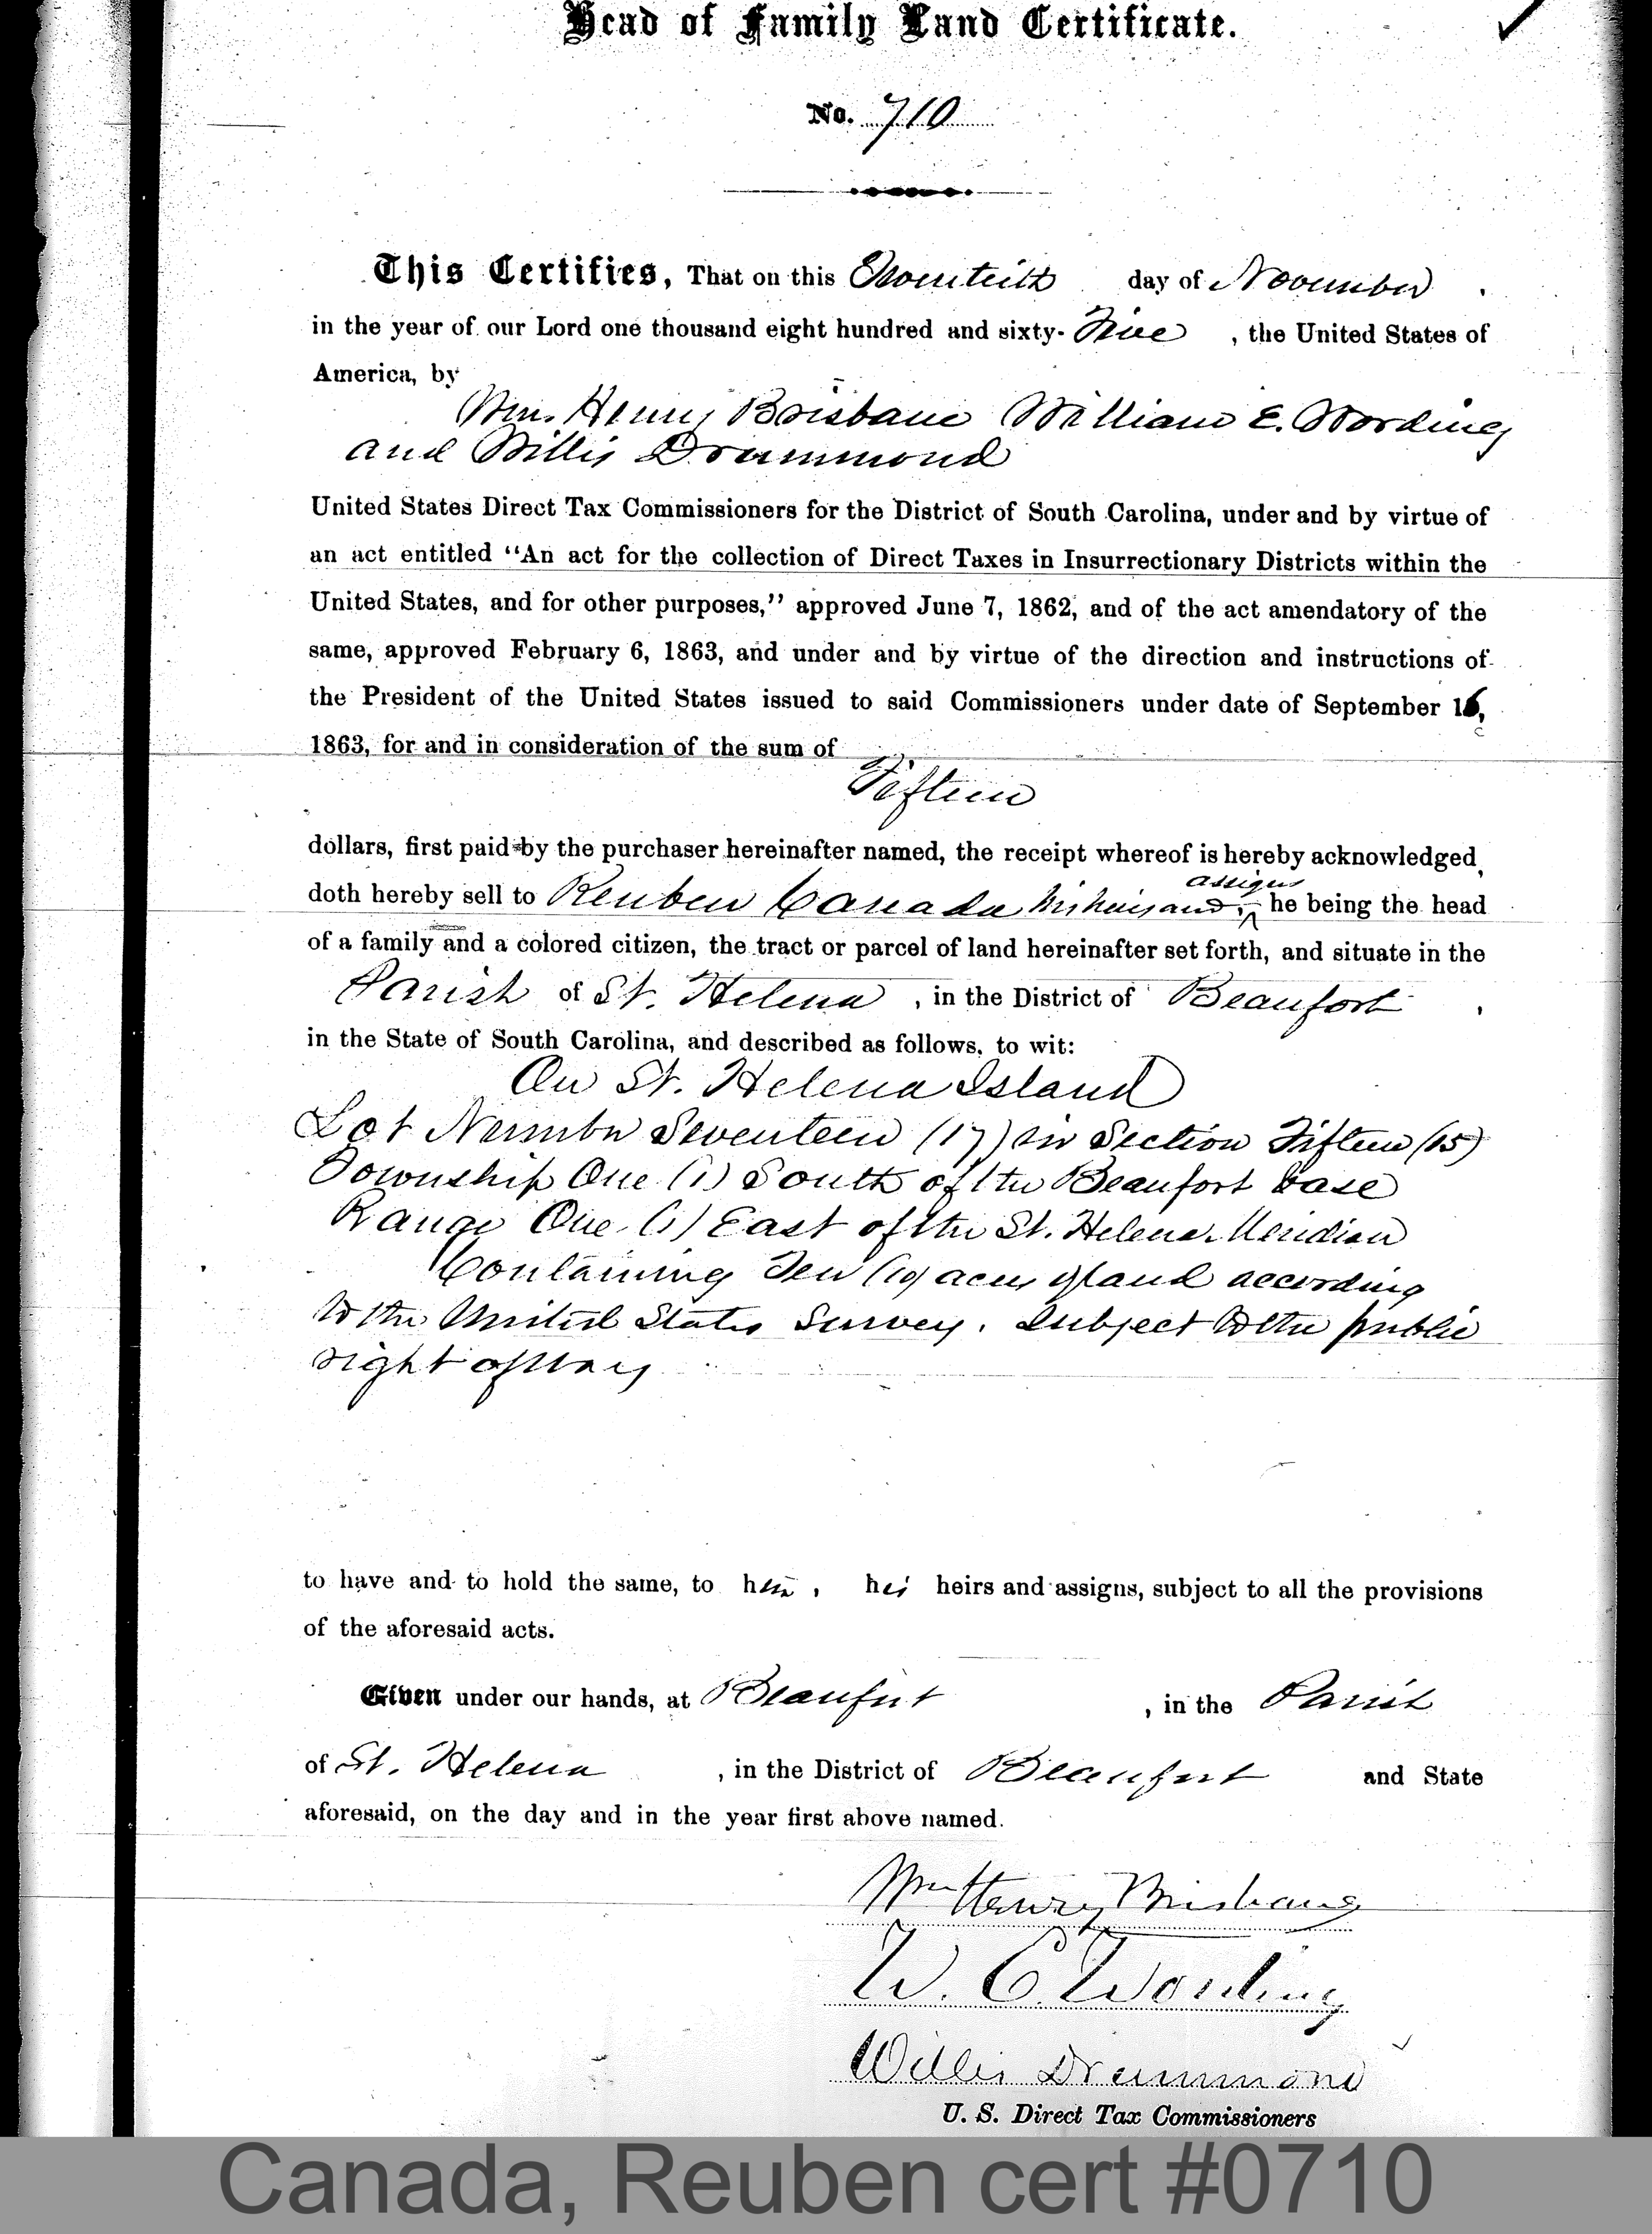 Head of Family Land Certificate.
No. 710
This Certifies, That on this day of November
in the year of our Lord one thousand eight hundred and sixty-Five, the United States of
America, by
Wm. Henry Brisbane William E. Wording
and Willis Drummond
United States Direct Tax Commissioners for the District of South Carolina, under and by virtue of
an act entitled "An act for the collection of Direct Taxes in Insurrectionary Districts within the
United States, and for other purposes," approved June 7, 1862, and of the act amendatory of the
same, approved February 6, 1863, and under and by virtue of the direction and instructions of
the President of the United States issued to said Commissioners under date of September 16,
1863, for and in consideration of the sum of
Fifteen
dollars, first paid by the purchaser hereinafter named, the receipt whereof is hereby acknowledged,
assigns
doth hereby sell to Reuben Canada his heirs and, he being the head
of a family and a colored citizen, the tract or parcel of land hereinafter set forth, and situate in the
Parish of St. Helena, in the District of Beaufort,
in the State of South Carolina, and described as follows, to wit:
On St. Helena Island
Lot Number Seventeen (17) in Section Fifteen (15)
Township One (1) South of the Beaufort base
Range One (1) East of the St. Helena Meridian
Containing Ten (10) acres of land according
to the United States Survey. Subject to the public
right of way
to have and to hold the same, to him, his heirs and assigns, subject to all the provisions
of the aforesaid acts.
Given under our hands, at Beaufort, in the Parish
of St. Helena, in the District of Beaufort and State
aforesaid, on the day and in the year first above named.
Wm Henry Brisbane
W. E. Wording
Willis Drummond
U. S. Direct Tax Commissioners
Canada, Reuben cert #0710